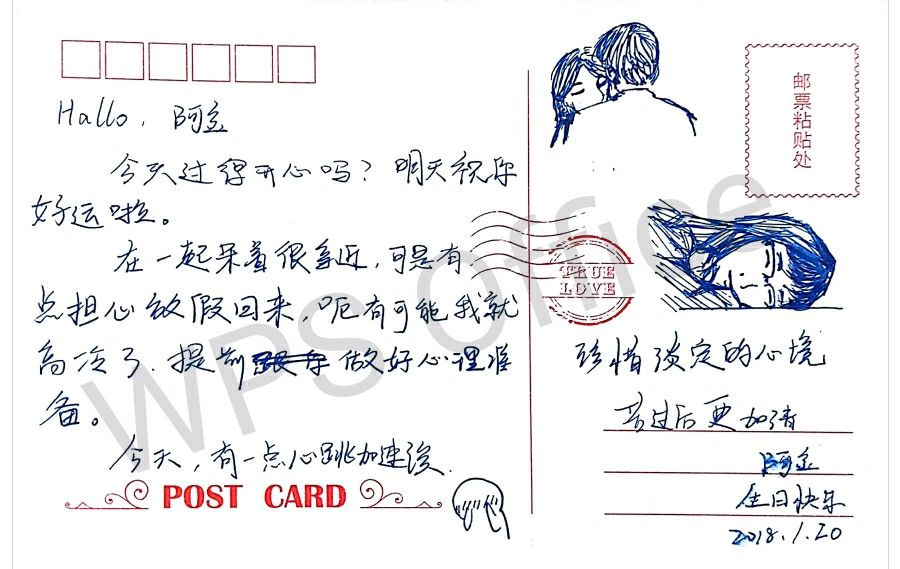 Hallo, 阿金
今天过得开心吗？明天祝你
好运啦。
在一起呆着很亲近，可是有
点担心放假回来，呃有可能我就
高冷了，提前做好心理准
备。
今天，有一点心跳加速诶.
POST CARD
邮票粘贴处
TRUE
LOVE
珍惜淡定的心境
苦过后更加清
阿金
生日快乐
2018.1.20
WPS Office